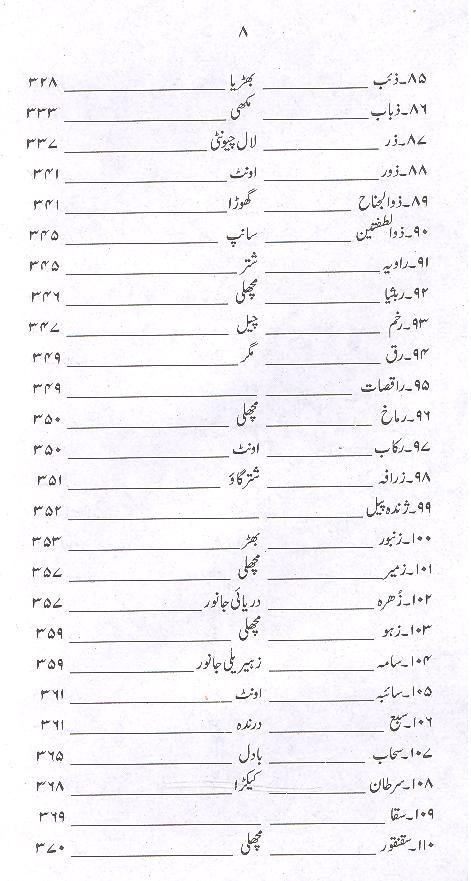 ۸
۸۵۔ذئب بھڑیا ۳۲۸
۸۶۔ذباب مکھی ۳۳۳
۸۷۔ذر لال چیونٹی ۳۳۷
۸۸۔ذور اونٹ ۳۴۱
۸۹۔ذوالجناح گھوڑا ۳۴۱
۹۰۔ذوالطفتین سانپ ۳۴۵
۹۱۔راویہ شتر ۳۴۵
۹۲۔ربثیا مچھلی ۳۴۶
۹۳۔رخم چیل ۳۴۷
۹۴۔رق مگر ۳۴۹
۹۵۔راقصات ۳۴۹
۹۶۔رماخ مچھلی ۳۵۰
۹۷۔رکاب اونٹ ۳۵۰
۹۸۔زرافہ شترگاؤ ۳۵۱
۹۹۔ژندہ پیل ۳۵۲
۱۰۰۔زنبور بھڑ ۳۵۳
۱۰۱۔زمیر مچھلی ۳۵۷
۱۰۲۔زُھرہ دریائی جانور ۳۵۷
۱۰۳۔زہو مچھلی ۳۵۹
۱۰۴۔سامہ زہیریلی جانور ۳۵۹
۱۰۵۔سائبہ اونٹ ۳۶۱
۱۰۶۔سبع درندہ ۳۶۱
۱۰۷۔سحاب بادل ۳۶۵
۱۰۸۔سرطان کیکڑا ۳۶۸
۱۰۹۔سقا ۳۶۹
۱۱۰۔سقنقور مچھلی ۳۷۰